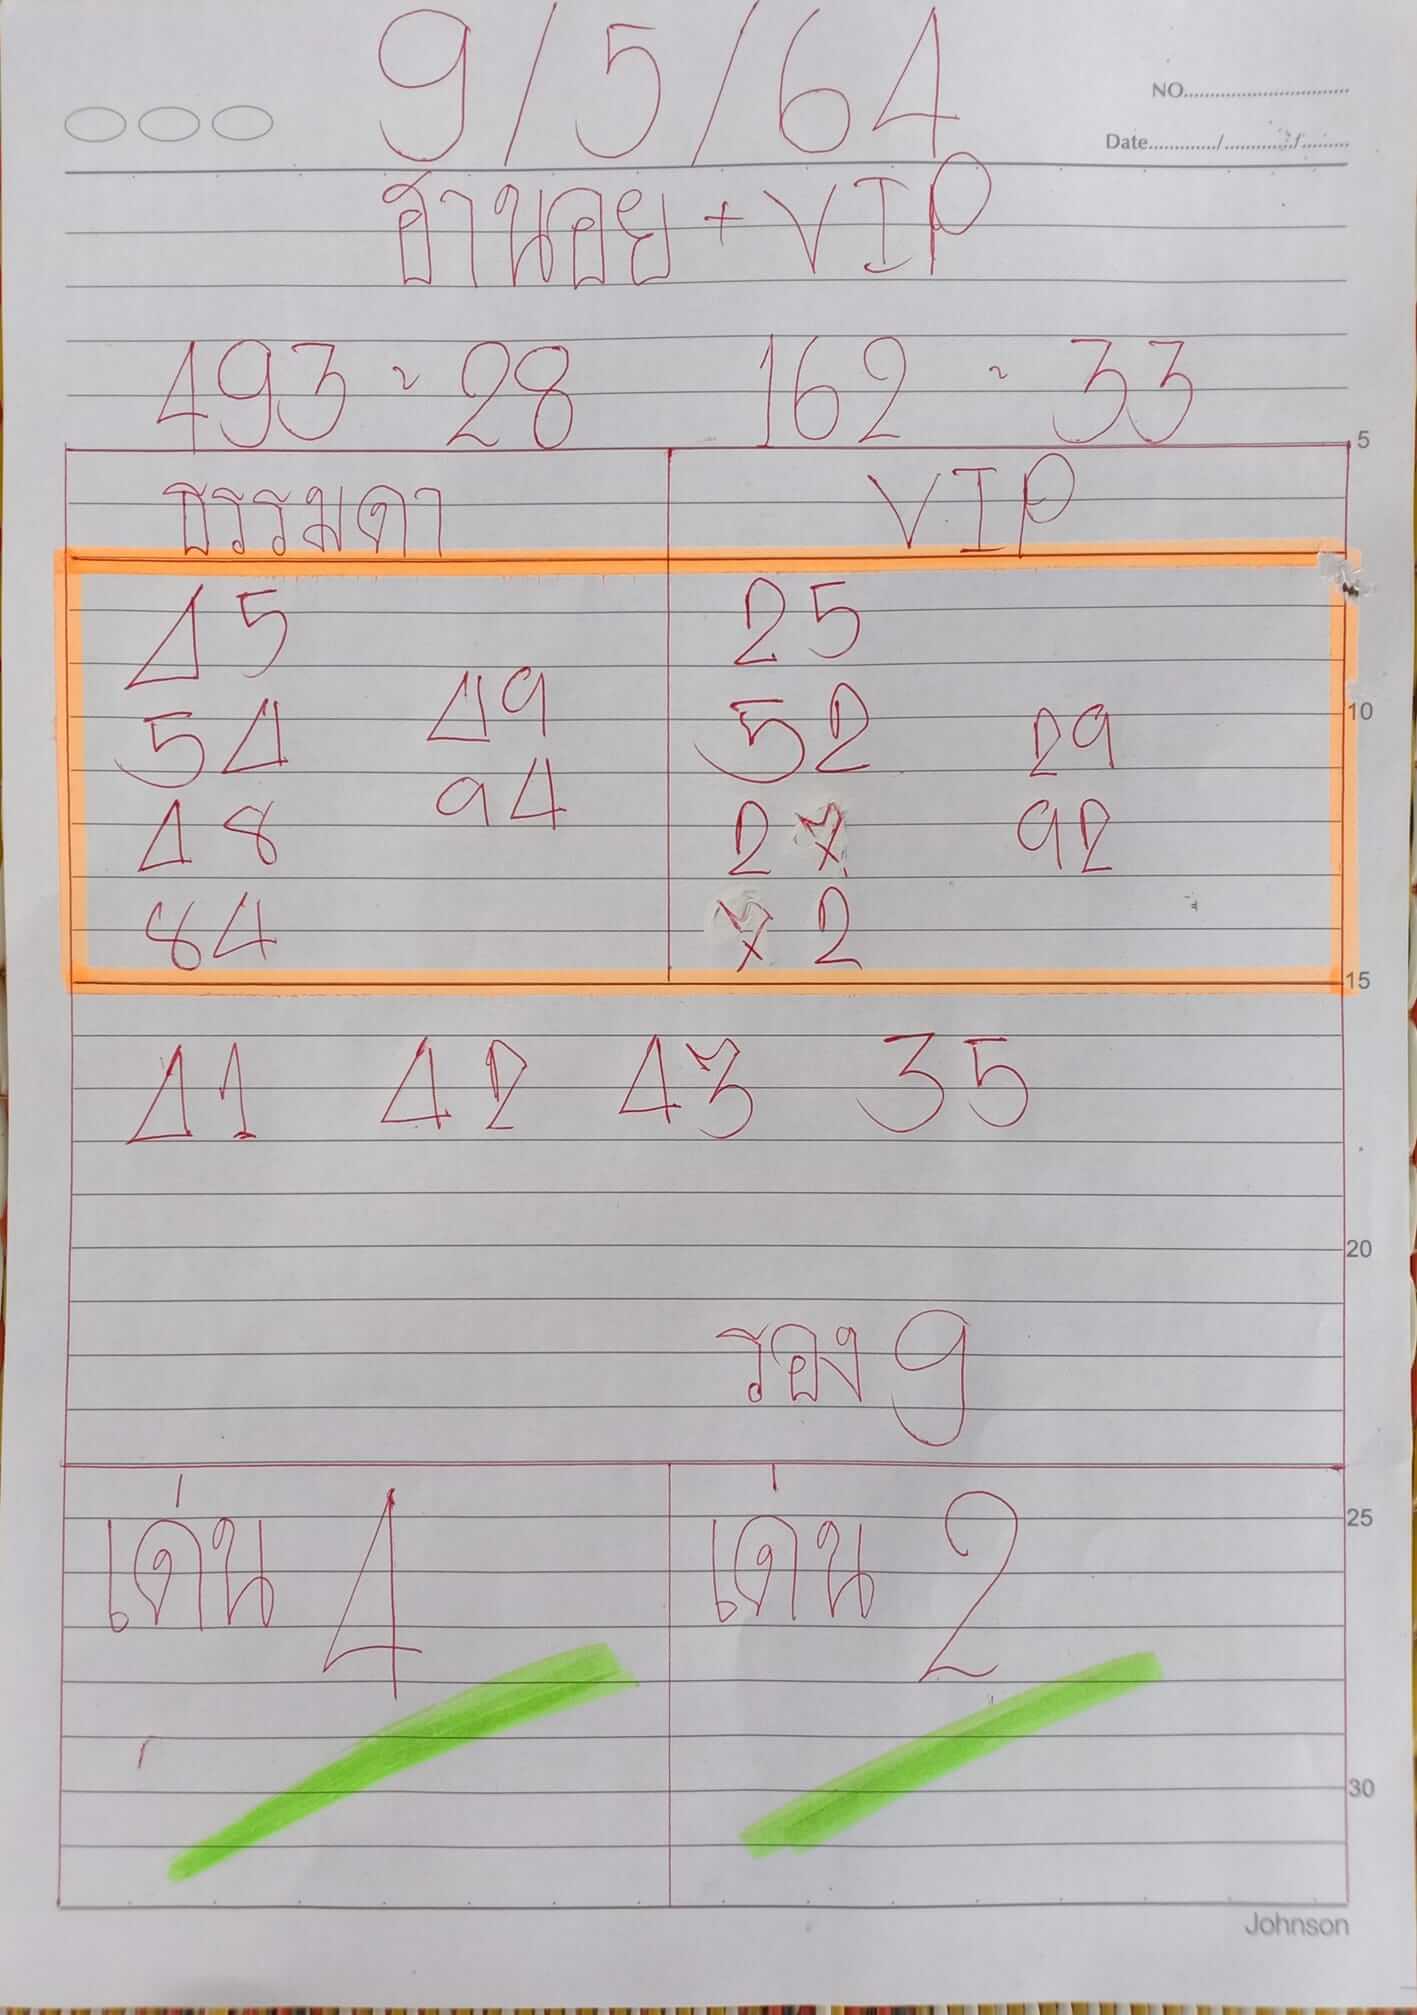 9/5/64
NO.
Date / /
ฮานอย + VIP
493 ~ 28 162 ~ 33
5
ธรรมดา VIP
45 25
54 49 52 29
10
48 94 27 92
84 72
15
41 42 43 35
20
รอง 9
เด่น 4 เด่น 2
25
30
Johnson